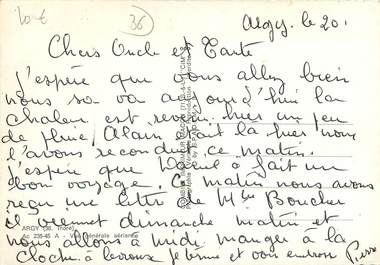 36
Argy. le 20.
Chers Oncle et Tante
J'espère que vous allez bien
nous sa va aujourd'hui la
chaleur est revenu. hier un peu
de pluie, Alain était la hier nous
l'avons reconduit ce matin.
j'espère que à fait un
bon voyage. Ce matin nous avons
reçu une lettre de Mme Boucher
il viennet dimanche matin et
nous allons à midi manger à la
cloche à levroux je ferme et vous
ARGY (36. Indre)
Ac 235-45 A - Vue générale aérienne